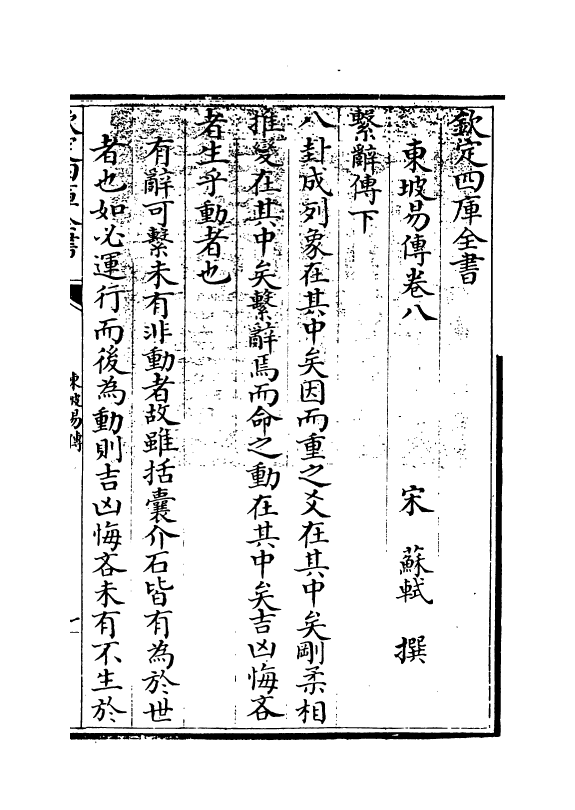 欽定四庫全書
東坡易傳卷八
宋 蘇軾 撰
繫辭傳下
八卦成列象在其中矣因而重之爻在其中矣剛柔相
推變在其中矣繫辭焉而命之動在其中矣吉凶悔吝
者生乎動者也
有辭可繫未有非動者故雖括囊介石皆有為於世
者也如必運行而後為動則吉凶悔吝未有不生於
欽定四庫全書
東坡易傳
一